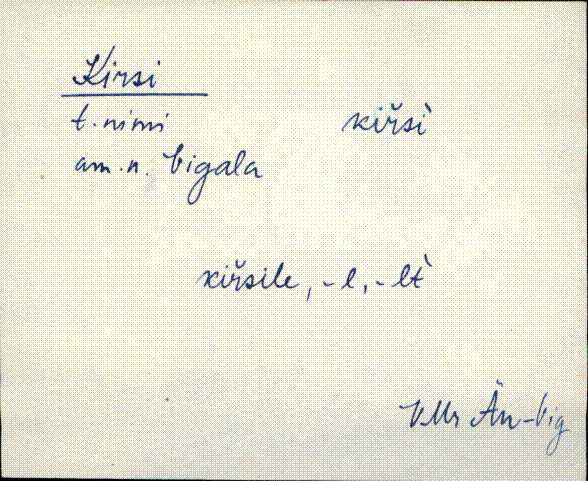 Kirsi
t. nimi kiřsì
am. n. Vigala
kiřsile, -l, -lt̀
VMr Än-Vig